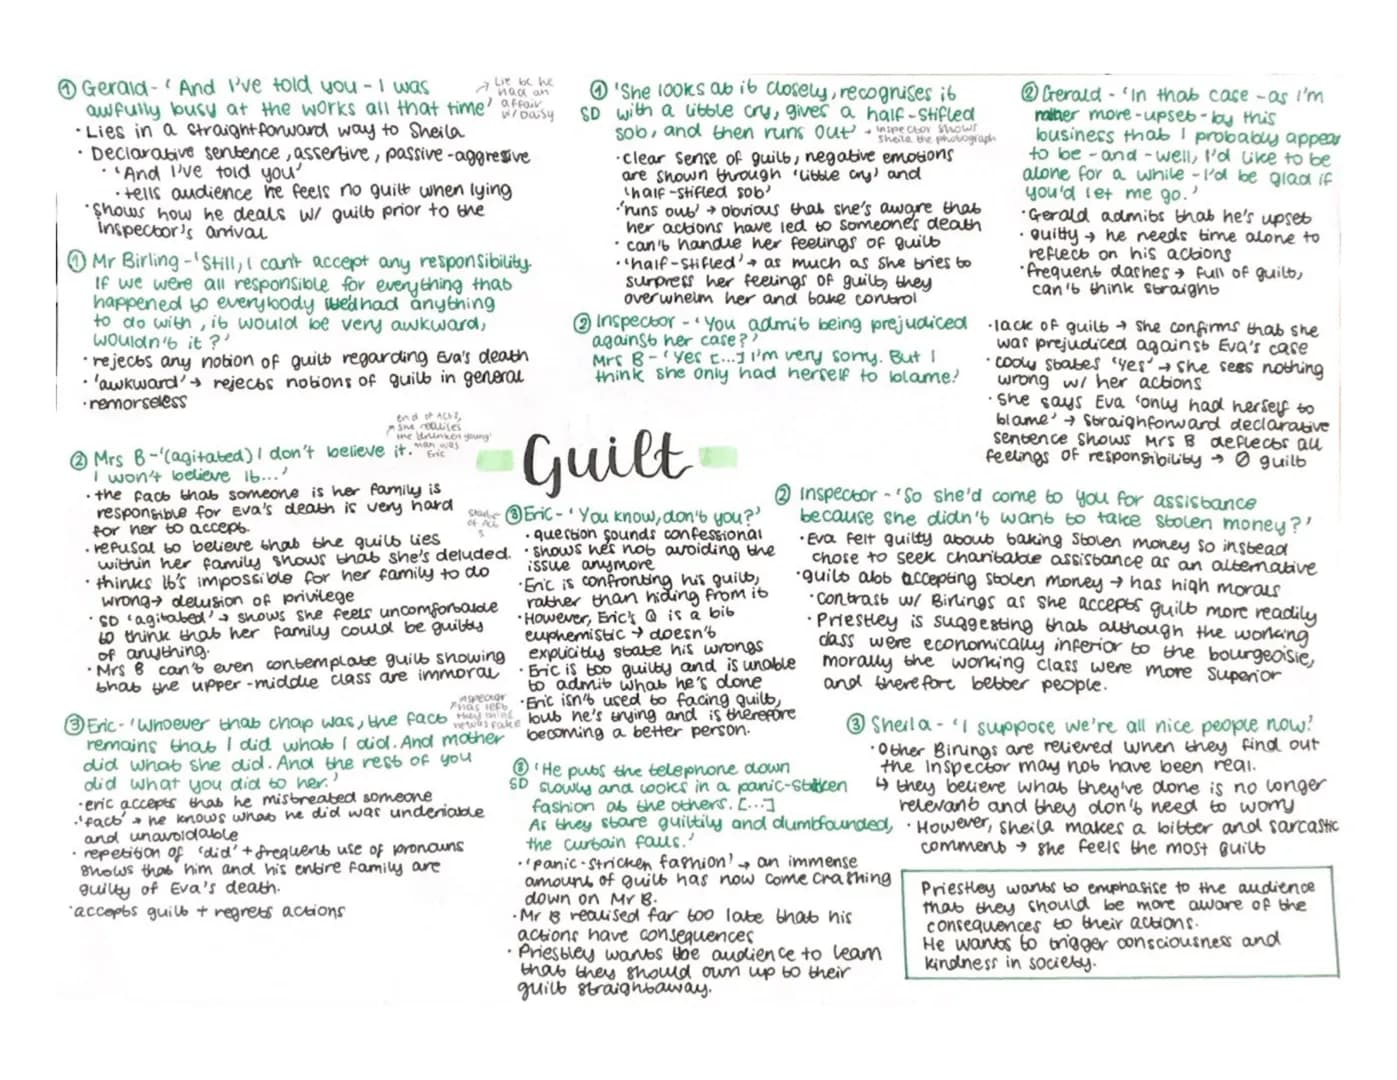 ① Gerald - 'And I've told you - I was
awfully busy at the works all that time'
↗ Lie bc he
had an
affair
w/ Daisy
· Lies in a straightforward way to Sheila
· Declarative sentence, assertive, passive-aggresive
· 'And I've told you'
· tells audience he feels no guilt when lying
· Shows how he deals w/ guilt prior to the
Inspector's arrival
① Mr Birling - 'Still, I can't accept any responsibility.
If we were all responsible for everything that
happened to everybody we'd had anything
to do with, it would be very awkward,
wouldn't it?'
· rejects any notion of guilt regarding Eva's death
· 'awkward' → rejects notions of guilt in general
· remorseless
② Mrs B - '(agitated) I don't believe it.
I won't believe it...'
end of Act 2,
she realises
the 'drunken young'
man was
Eric
· the fact that someone is her family is
responsible for Eva's death is very hard
for her to accept.
· refusal to believe that the guilt lies
within her family shows that she's deluded.
· thinks it's impossible for her family to do
wrong → delusion of privilege
· SD 'agitated' → shows she feels uncomfortable
to think that her family could be guilty
of anything.
· Mrs B can't even contemplate guilt showing
that the upper-middle class are immoral
③ Eric - 'Whoever that chap was, the fact
remains that I did what I did. And mother
did what she did. And the rest of you
did what you did to her.'
inspector
has left,
they think
he was fake
· eric accepts that he mistreated someone
· 'fact' → he knows what he did was undeniable
and unavoidable
· repetition of 'did' + frequent use of pronouns
shows that him and his entire family are
guilty of Eva's death.
· accepts guilt + regrets actions
① 'She looks at it closely, recognises it
SD with a little cry, gives a half-stifled
sob, and then runs out'
→ Inspector shows
Sheila the photograph
· clear sense of guilt, negative emotions
are shown through 'little cry' and
'half-stifled sob'
· 'runs out' → obvious that she's aware that
her actions have led to someone's death
· can't handle her feelings of guilt
· 'half-stifled' → as much as she tries to
surpress her feelings of guilt, they
overwhelm her and take control
② Inspector - 'You admit being prejudiced
against her case?'
Mrs B - 'Yes [...] I'm very sorry. But I
think she only had herself to blame.'
· lack of guilt → she confirms that she
was prejudiced against Eva's case
· cooly states 'yes' → she sees nothing
wrong w/ her actions
· She says Eva 'only had herself to
blame' → straightforward declarative
sentence shows Mrs B deflects all
feelings of responsibility → ∅ guilt
② Gerald - 'In that case - as I'm
rather more - upset - by this
business that I probably appear
to be - and - well, I'd like to be
alone for a while - I'd be glad if
you'd let me go.'
· Gerald admits that he's upset
· guilty → he needs time alone to
reflect on his actions
· frequent dashes → full of guilt,
can't think straight
Guilt
start
of Act
3
③ Eric - 'You know, don't you?'
· question sounds confessional
· shows he's not avoiding the
issue anymore
· Eric is confronting his guilt,
rather than hiding from it
· However, Eric's Q is a bit
euphemistic → doesn't
explicitly state his wrongs
· Eric is too guilty and is unable
to admit what he's done
· Eric isn't used to facing guilt,
but he's trying and is therefore
becoming a better person.
③ 'He puts the telephone down
SD slowly and looks in a panic-stricken
fashion at the others. [...]
As they stare guiltily and dumbfounded,
the curtain falls.'
· 'panic-stricken fashion' → an immense
amount of guilt has now come crashing
down on Mr B.
· Mr B realised far too late that his
actions have consequences
· Priestley wants the audience to learn
that they should own up to their
guilt straightaway.
② Inspector - 'So she'd come to you for assistance
because she didn't want to take stolen money?'
· Eva felt guilty about taking stolen money so instead
chose to seek charitable assistance as an alternative
· guilt abt accepting stolen money → has high morals
· contrast w/ Birlings as she accepts guilt more readily
· Priestley is suggesting that although the working
class were economically inferior to the bourgeoisie,
morally the working class were more superior
and therefore better people.
③ Sheila - 'I suppose we're all nice people now!'
· Other Birlings are relieved when they find out
the Inspector may not have been real.
↳ they believe what they've done is no longer
relevant and they don't need to worry
· However, Sheila makes a bitter and sarcastic
comment → she feels the most guilt
Priestley wants to emphasise to the audience
that they should be more aware of the
consequences to their actions.
He wants to trigger consciousness and
kindness in society.